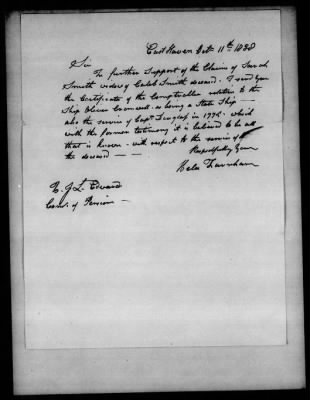 East Haven Oct. 11th 1838
Sir
In further Support of the Claim of Sarah
Smith widow of Caleb Smith deceased. I send you
the Certificate of the Comptroller relative to the
Ship Oliver Cromwell as being a State Ship —
also the service of Capt. Douglass in 1776. which
with the former testimony it is believed to be all
that is known - with respect to the service of
the deceased —
Respectfully Yours
Farnham
J. L. Edwards
Com. of Pension —